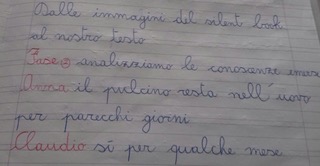 Dalle immagini del silent book
al nostro testo
Fase 2 analizziamo le conoscenze emerse
Anna il pulcino resta nell'uovo
per parecchi giorni
Claudio sì per qualche mese